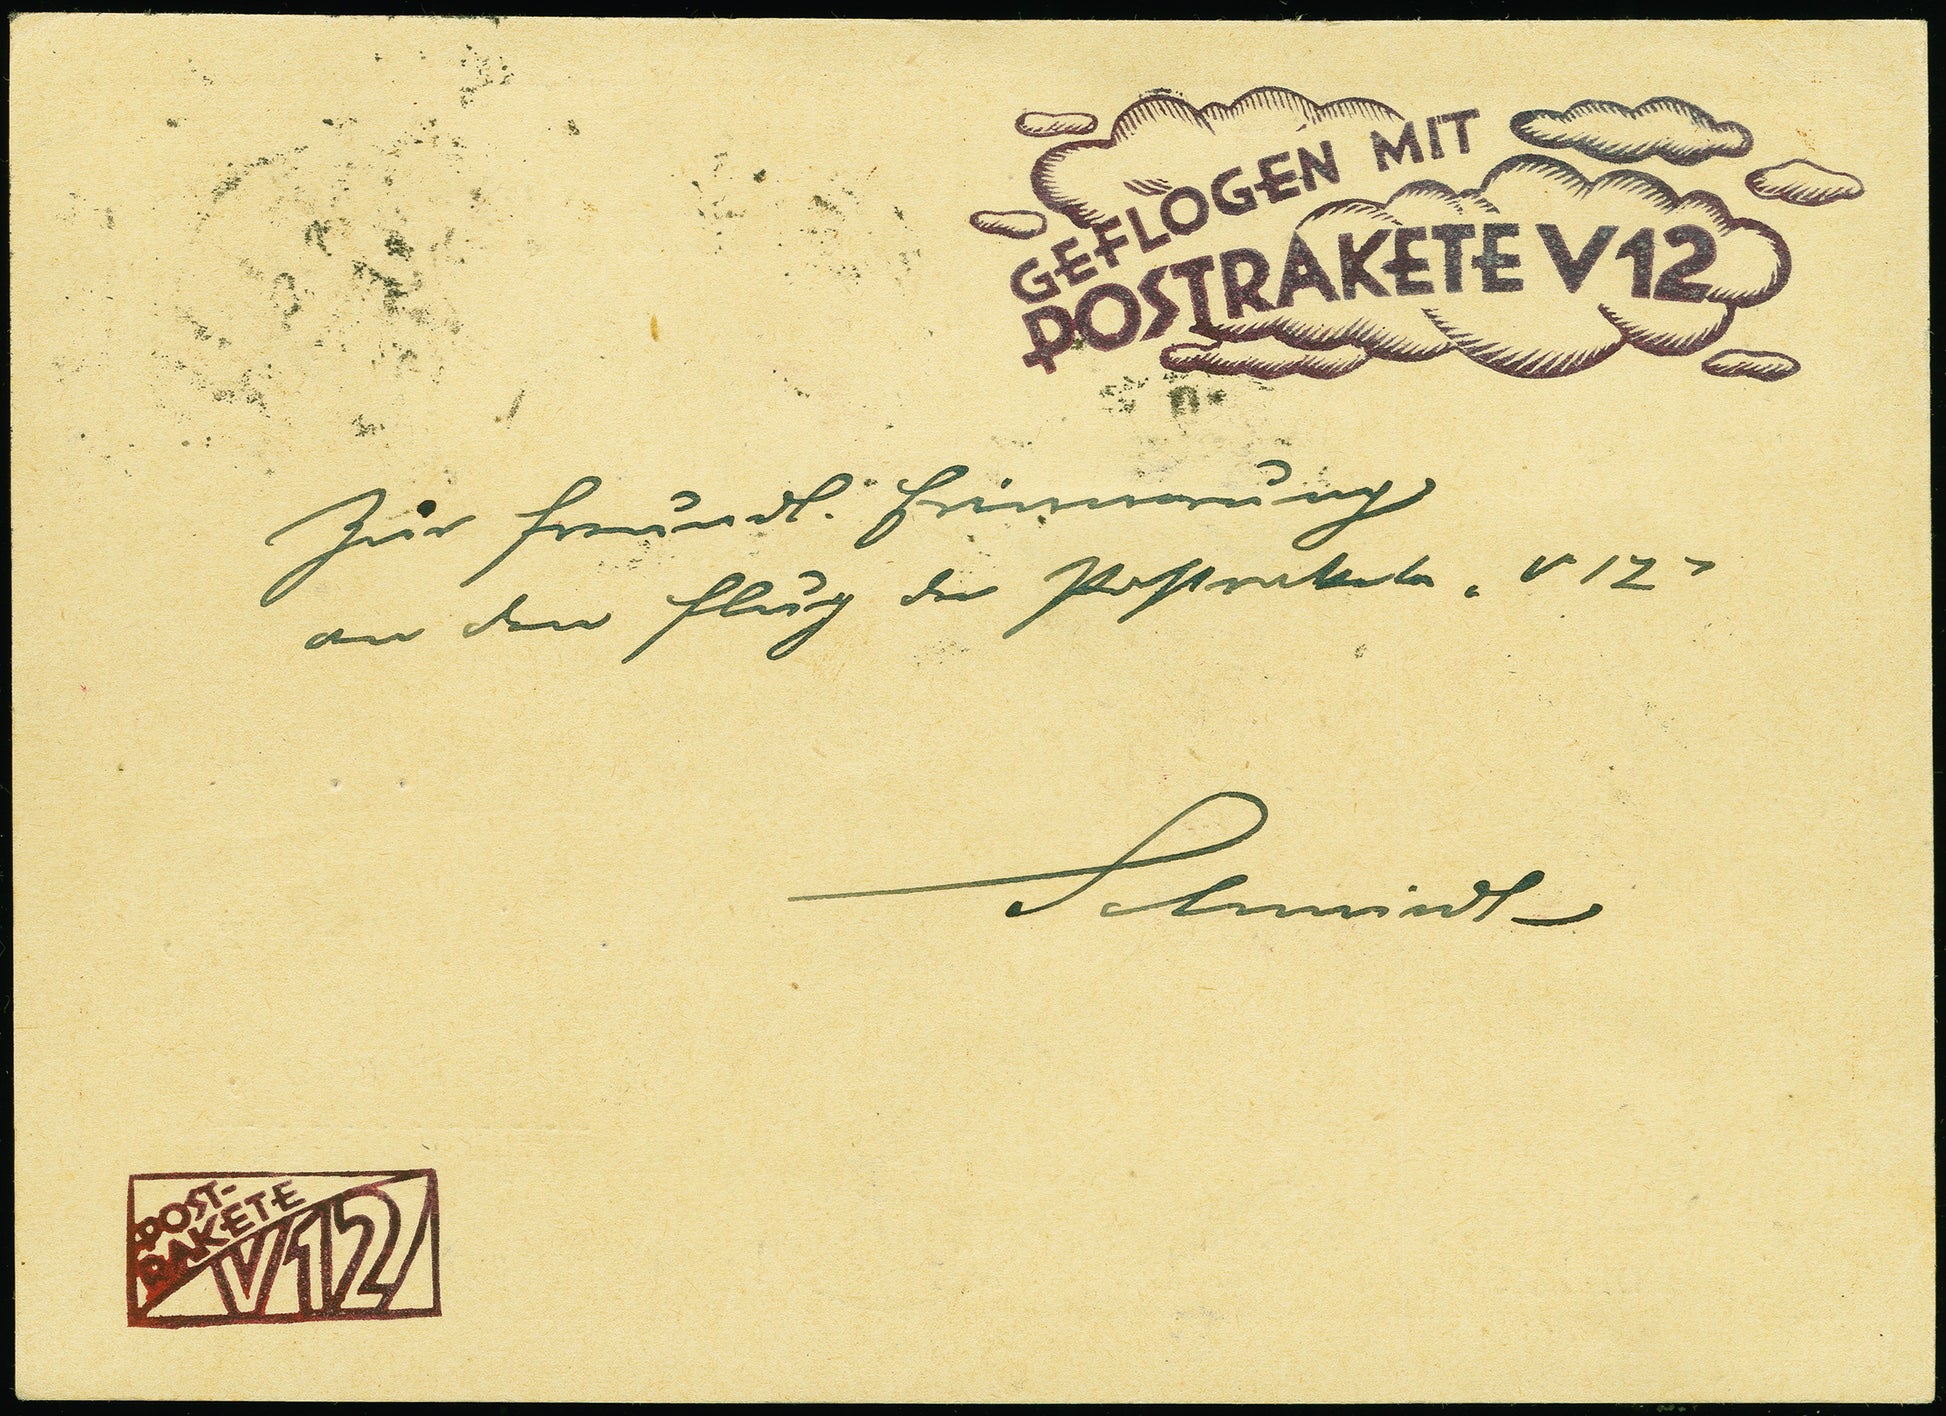 GEFLOGEN MIT
POSTRAKETE V12
Zur freundl. Erinnerung
an den Flug der Postrakete „V 12"
Schmiedl
POST-
RAKETE
V12